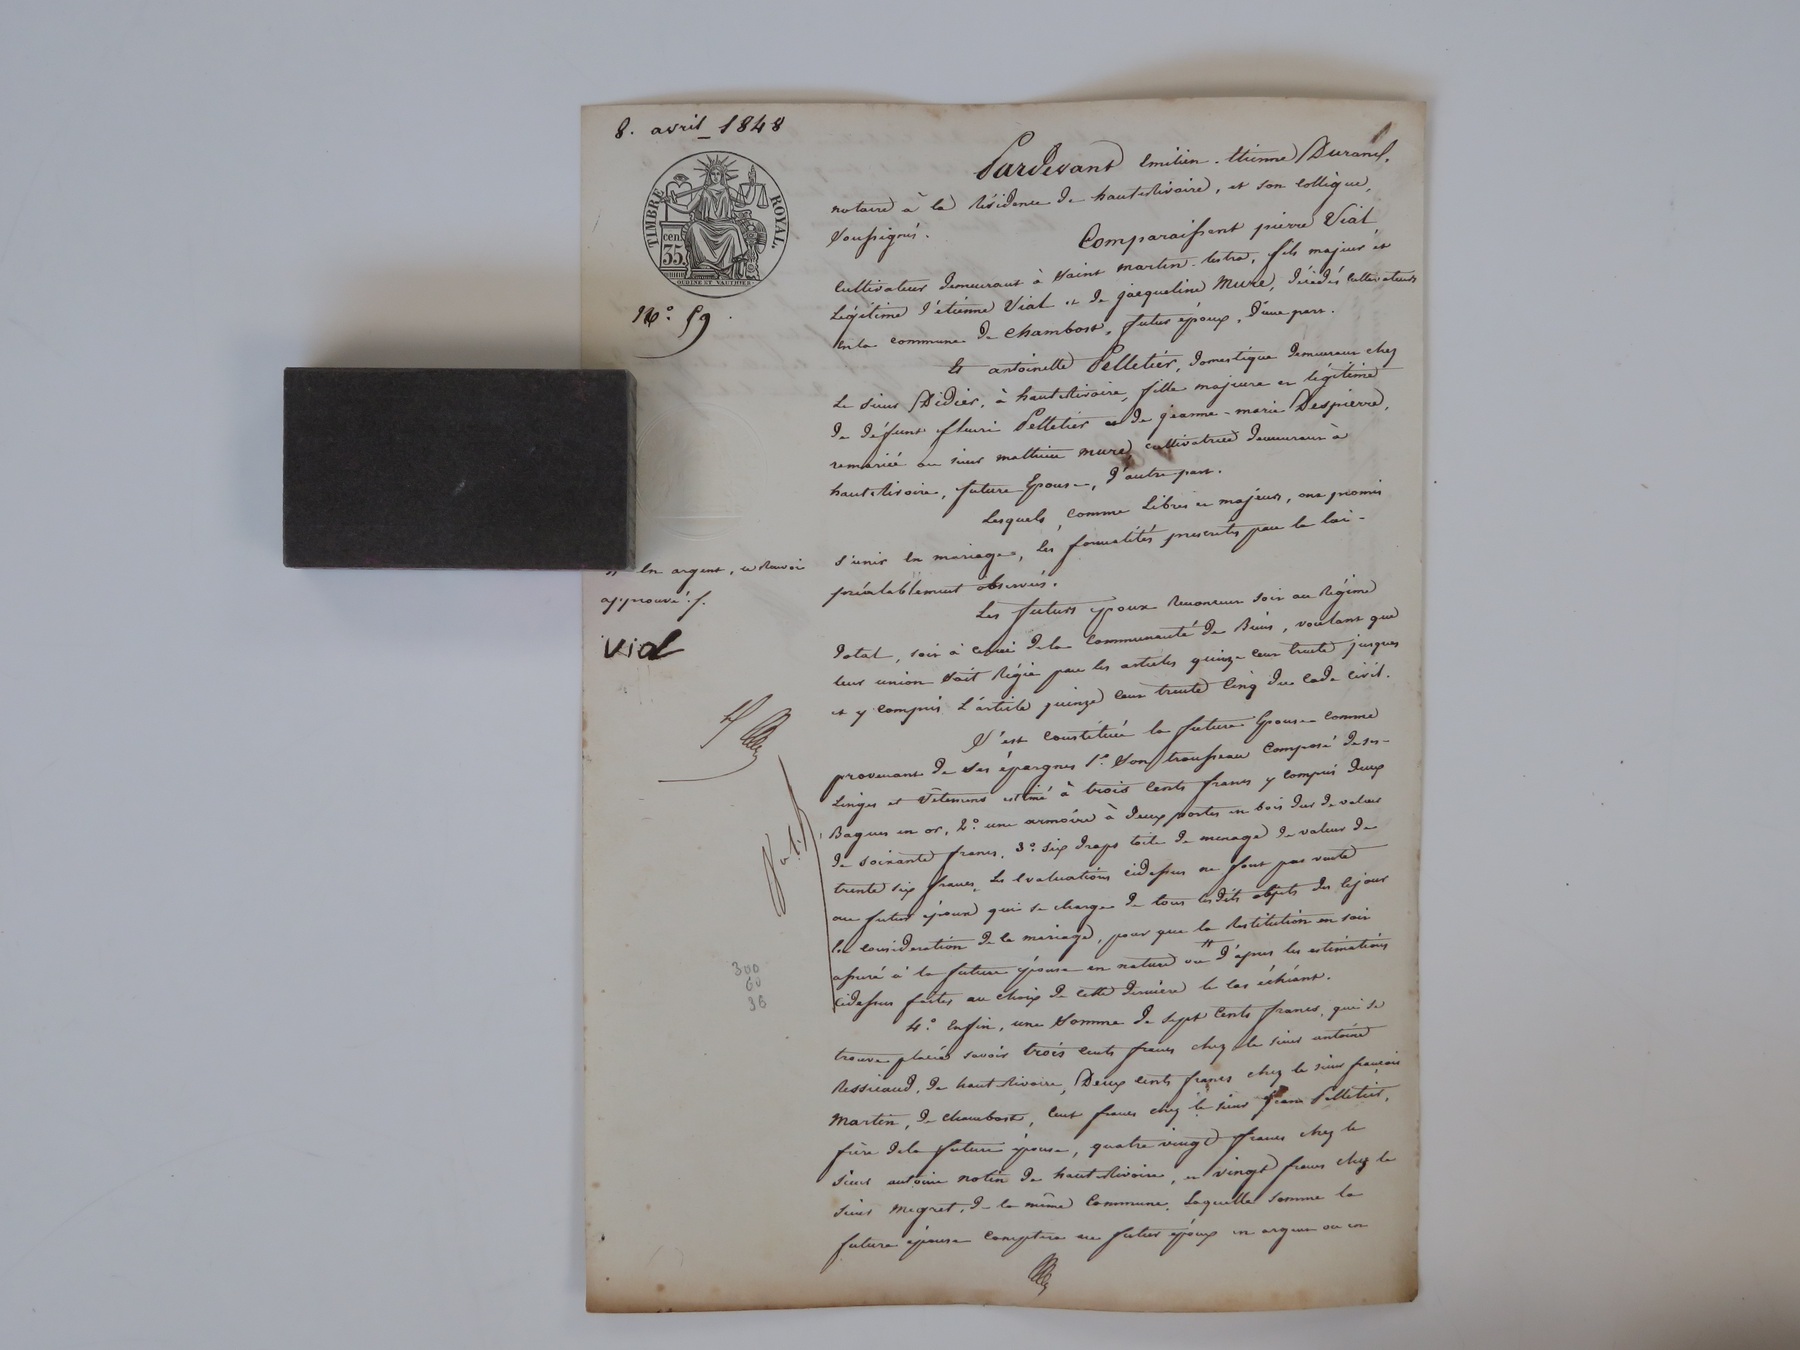 8. avril_1848
TIMBRE ROYAL.
cen.
35.
OUDINÉ ET VAUTHIER.
N°. 59
Pardevant Emilien-Etienne Durand,
notaire à la Résidence de hauterivoire, et son collègue,
soussignés.
Comparaissent pierre Vial
cultivateur demeurant à Saint martin-lestra, fils majeur et
Légitime d'étienne Vial et de jacqueline Mure, décédés cultivateurs
en la commune de Chambost, futur époux, d'une part.
Et antoinette Pelletier, domestique demeurant chez
Le sieur Didier, à hauterivoire, fille majeure et légitime
de défunt fleuri Pelletier et de jeanne-marie Despierre,
remariée au sieur mathieu mure, cultivatrice demeurant à
hauterivoire, future Epouse, d'autre part.
Lesquels, comme Libres et majeurs, ont promis
s'unir en mariage, les formalités prescrites par la loi-
préalablement observées.
Les futurs époux Renoncent soit au Régime
dotal, soit à celui de la Communauté de Biens, voulant que
leur union soit Régie par les articles quinze cent trente jusques
et y compris L'article quinze cent trente cinq du Code Civil.
S'est constituée la future Epouse comme
provenant de ses épargnes 1°. Son trousseau composé de ses-
Linges et vêtemens estimé à trois cents francs y compris deux
Bagues en or, 2°. une armoire à deux portes en bois dur de valeur
de soixante francs, 3°. six draps toile de menage de valeur de
trente six francs, les évaluations cidessus ne font pas vente
au futur époux qui se charge de tous lesdits objets dès le jour
la considération de le mariage, pour que la Restitution en soit
assurée à la future épouse en nature ou # d'après les estimations
cidessus faites au choix de cette dernière le cas échéant.
4°. Enfin, une Somme de sept Cents francs, qui se
trouve placée savoir trois cents francs chez le sieur antoine
Ressicaud, de hauterivoire, Deux cents francs chez le sieur françois
Martin, de chambost, Cent francs chez le sieur Jean Pelletier,
frère de la future épouse, quatre vingt francs chez le
sieur antoine notin de hauterivoire, et vingt francs chez le
sieur Megret, de la même Commune. Laquelle somme la
future épouse comptera au futur époux en argent ou en
# En argent, ce Renvoi
approuvé. /.
Vial
300
60
36